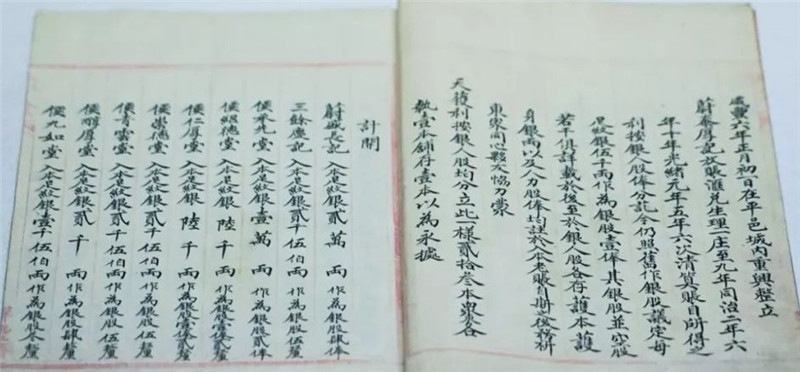 咸豐六年正月初一日在平邑城內重興整立
蔚泰厚記放賬滙兌生理一庄至九年同治二年六
年十年光緒元年五年六次清算賬目所得之
利按銀人股俸分訖今仍照舊作銀股議定每
足紋銀伍千兩作為銀股壹俸其銀股並空股
若干俱詳載於後至於銀人股各存護本護
身銀兩以及人力股俸均註於入本老賬自斯之後務祈
東家同心夥友協力蒙
天護利按銀人股均分立此一樣貳拾叁本眾各
執壹本鋪存壹本以為永據
計開
蔚盛長記入本足紋銀貳萬兩作為銀股肆俸
三餘慶記入本足紋銀貳千伍佰兩作為銀股伍釐
侯承先堂入本足紋銀壹萬兩作為銀股貳俸
侯德堂入本足紋銀陸千兩作為銀股壹俸貳釐
侯仁厚堂入本足紋銀陸千兩作為銀股壹俸貳釐
侯崇德堂入本足紋銀貳千伍佰兩作為銀股伍釐
侯青雲堂入本足紋銀貳千伍佰兩作為銀股伍釐
侯醇厚堂入本足紋銀貳千兩作為銀股肆釐
侯九如堂入本足紋銀壹千伍佰兩作為銀股叁釐